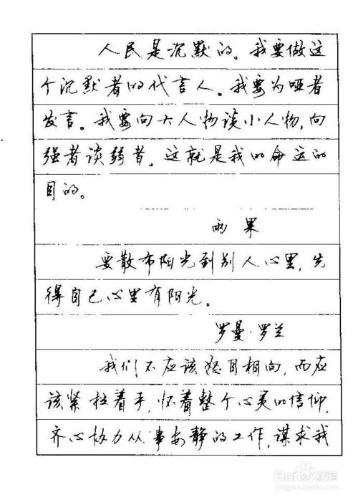 人民是沉默的。我要做这
个沉默者的代言人。我要为哑者
发言。我要向大人物谈小人物,向
强者谈弱者。这就是我的命运的
目的。
雨果
要散布阳光到别人心里,先
得自己心里有阳光。
罗曼·罗兰
我们不应该怒目相向,而应
该紧拉着手,怀着整个心灵的信仰,
齐心协力从事安静的工作,谋求我